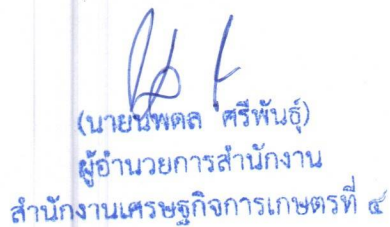 (นายนพดล ศรีพันธุ์)
ผู้อำนวยการสำนักงาน
สำนักงานเศรษฐกิจการเกษตรที่ ๔